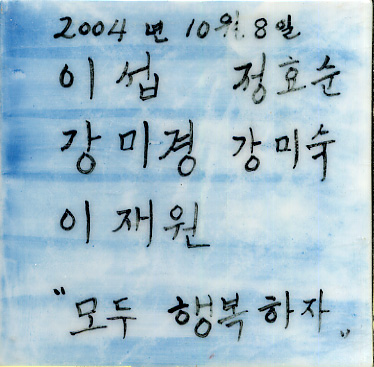 2004 년 10월 8일
이 섭 정호순
강미경 강미숙
이재원
"모두 행복하자"